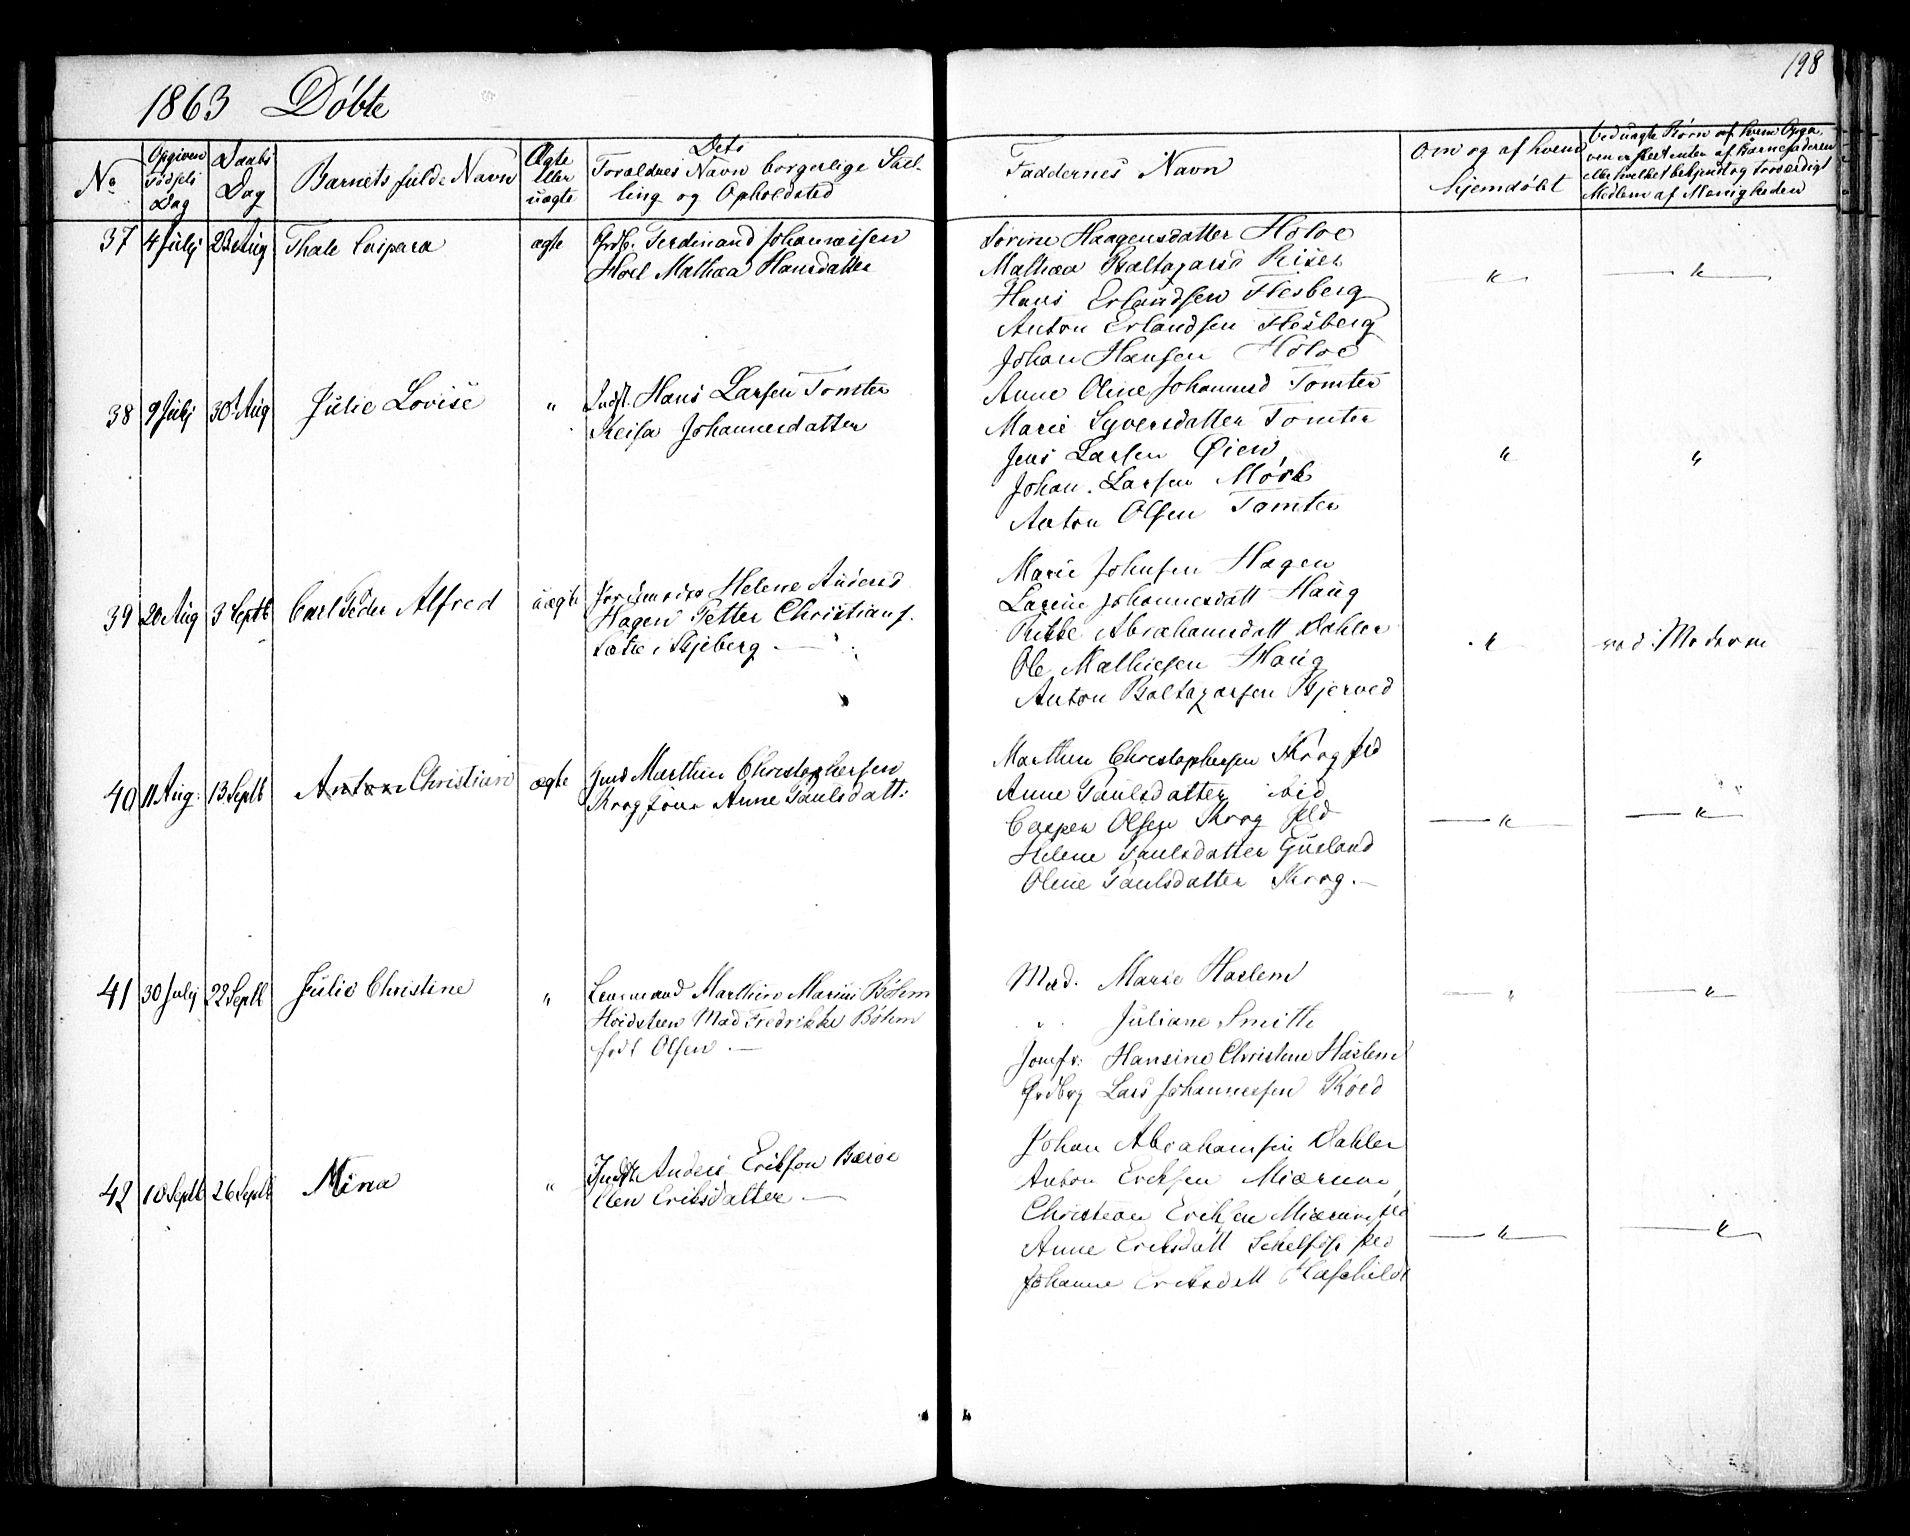 198
1863 Døbte
No
Opgiven Fødsels Dag
Daabs Dag
Barnets fulde Navn
Ægte eller uægte
Dets Forældres Navn borgerlige Stilling og Opholdsted
Faddernes Navn
Om og af hvem hjemdøbt
ved uagte Børn af hvem Opgaven er skeet enten af Barnefaderen eller hvilket bekjendt og troværdigt Medlem af Menigheden
37 4 July 23 Aug Thale Caspara ægte Grdb. Ferdinand Johannessen
Hoel Mathea Hansdatter
Sorine Haagensdatter Holoe
Mathea Baltazarsd Riser
Hans Erlandsen Flesberg
Anton Erlandsen Flesberg
Johan Hansen Holoe
38 9 July 30 Aug Julie Lovise " Indst. Hans Larsen Tomter
Johannesdatter
Anne Oline Johannesd Tomter
Marie Syversdatter Tomter
Jens Larsen Øien
Johan Larsen Mørk
Anton Olsen Tomter
39 20 Aug 3 Septb Carl Peder Alfred uægte Helene Andersd
Hagen Petter Christians.
i Skjeberg
Marie Johnsen Hagen
Larine Johannesdatt Haug
Abrahamsdatt Dahler
Ole Mathiesen Haug
Anton Baltazarsen Bjerved
ved Moderen
40 11 Aug. 13 Septb Anton Christian ægte Gmd Marthin Christophersen
Skrog Anne Paulsdatt.
Marthin Christophersen Skrog
Anne Paulsdatter ibid
Casper Olsen Skrog
Helene Paulsdatter
Oline Paulsdatter Skrog.
41 30 July 22 Septb Julie Christine " Lensmand Marthin Marius Bøhm
Høidsteen Mad Fredrikke Bøhm
født Olsen
Mad. Marie Haslem
" Juliane Smith
Jomfr. Hansine Christine Haslem
Grdbrg Lars Johannessen Røed
42 10 Septb 26 Septb Mina " Indst Anders Eriksen Barøe
Elen Eriksdatter
Johan Abrahamsen Dahler
Anton Eriksen Mærum
Christian Eriksen Mærum
Anne Eriksdatt
Johanne Eriksdatt